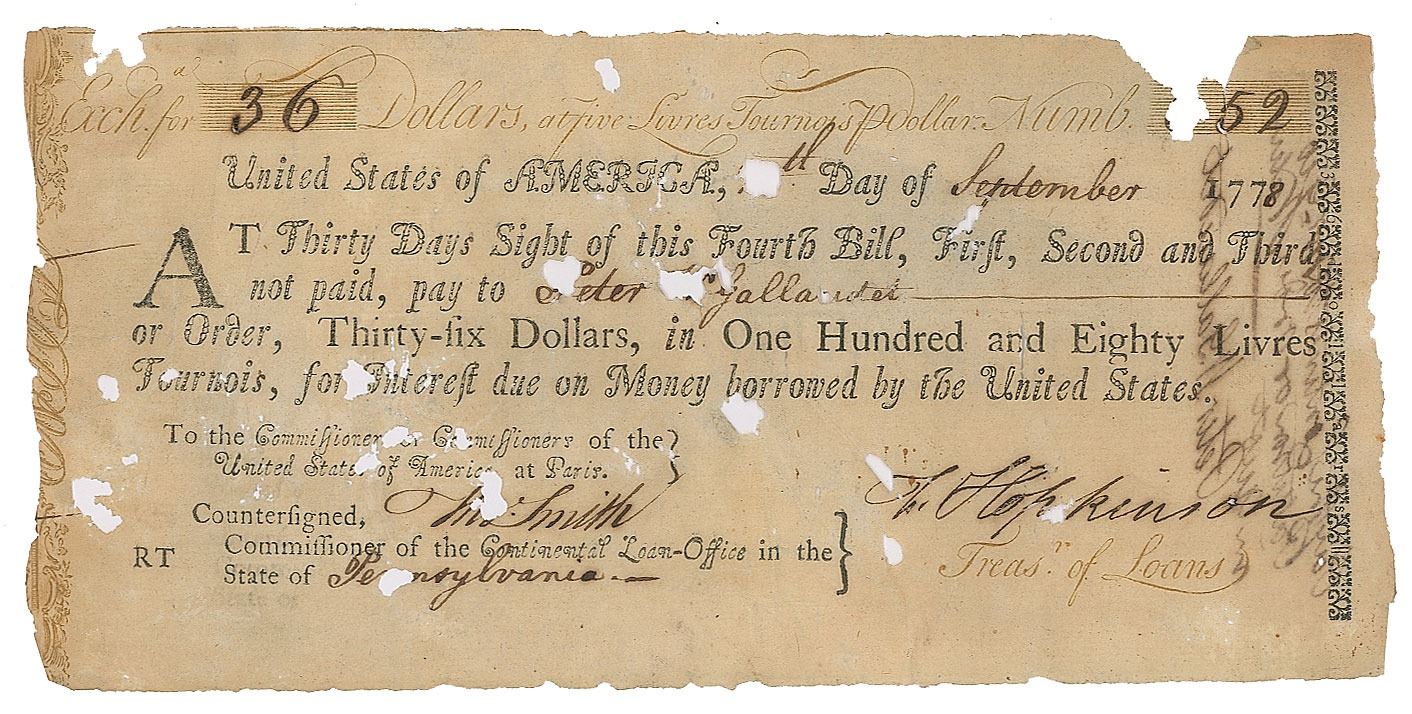 Exchᵃ. for 36 Dollars, at five Livres Tournois ℔ Dollar. Numb. 52
United States of AMERICA, th Day of September 1778
AT Thirty Days Sight of this Fourth Bill, Firſt, Second and Third
not paid, pay to Peter Gallaudet
or Order, Thirty-ſix Dollars, in One Hundred and Eighty Livres
Tournois, for Intereſt due on Money borrowed by the United States.
To the Commiſſioner or Commiſſioners of the
United States of America, at Paris.
Counterſigned, Thos Smith
RT Commiſſioner of the Continental Loan-Office in the
State of Pennsylvania.
Hopkinson
Treasʳ. of Loans